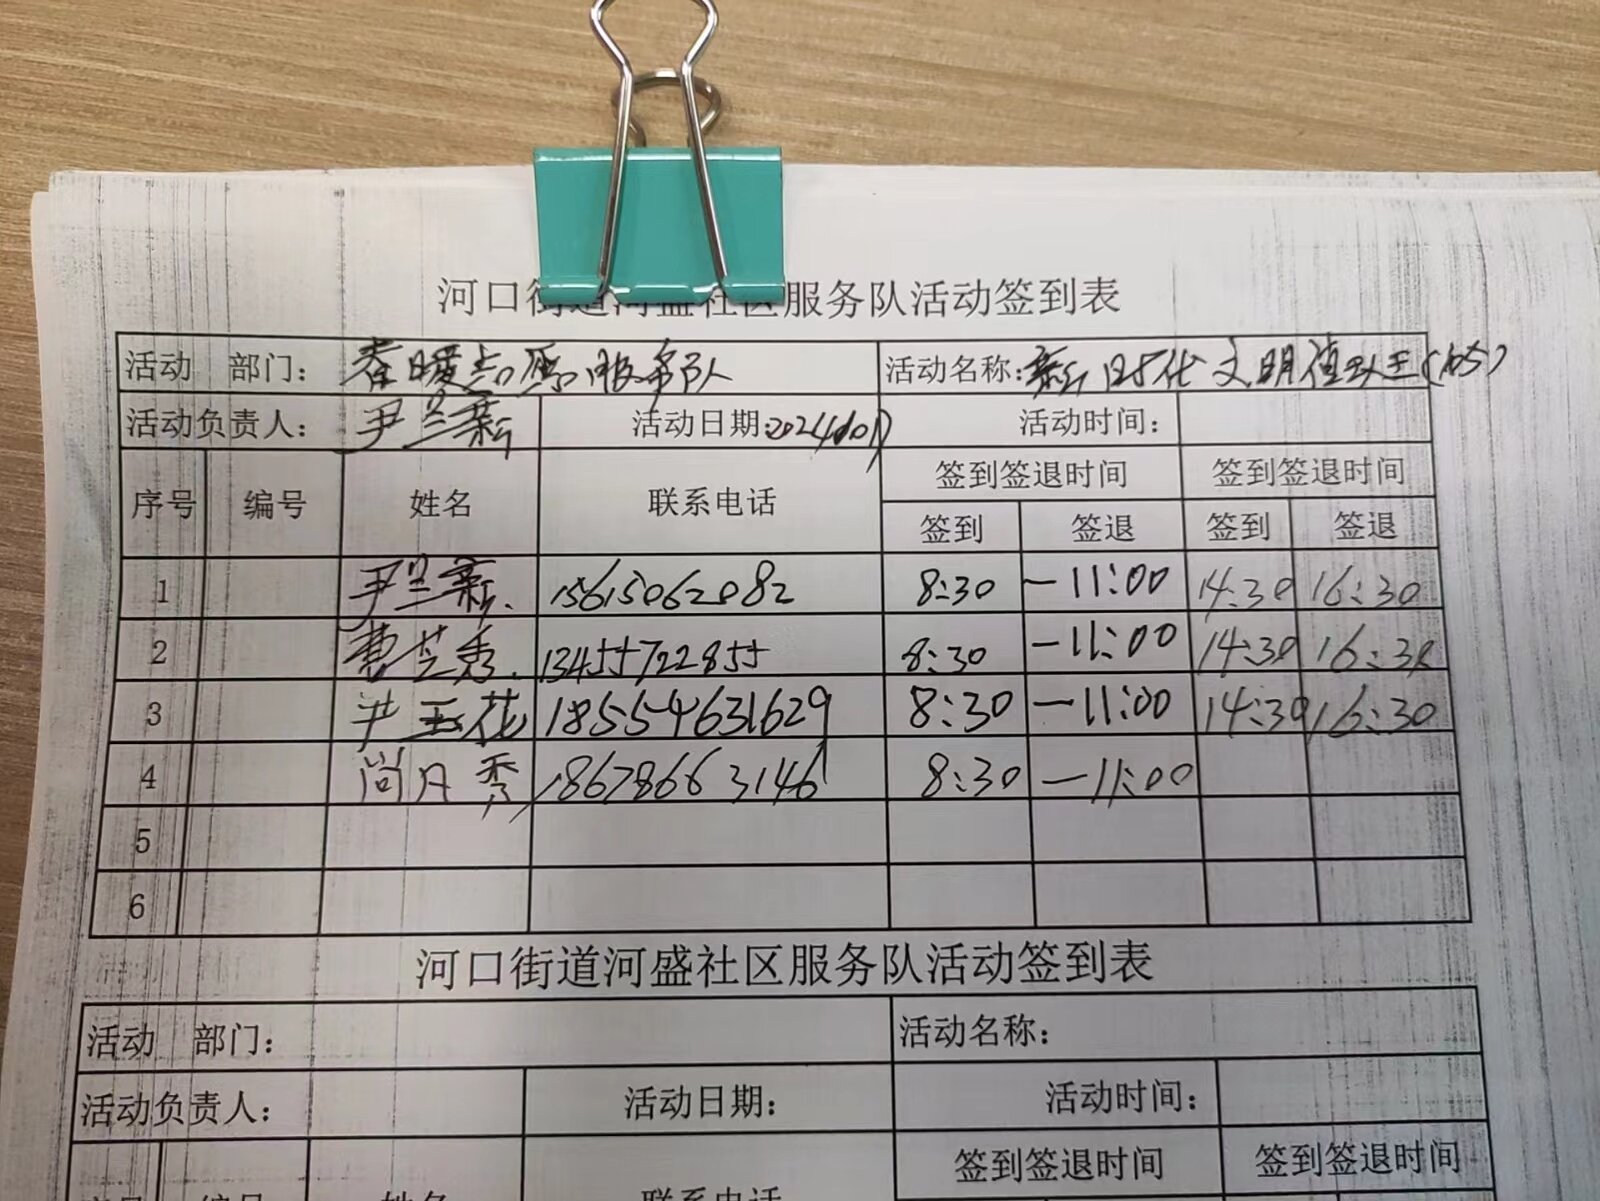 河口街道河盛社区服务队活动签到表
活动 部门： 春暖志愿服务队 活动名称：新时代文明值班
活动负责人： 尹兰新 活动日期： 活动时间：
序号 编号 姓名 联系电话 签到签退时间 签到签退时间
签到 签退 签到 签退
1 尹兰新. 15615062082 8:30 —11:00 14:30 16:30
2 曹芝秀. 13455722855 8:30 —11:00 14:30 16:30
3 尹玉花 18554631629 8:30 —11:00 14:30 16:30
4 尚月秀 18678663146 8:30 —11:00
5
6
河口街道河盛社区服务队活动签到表
活动 部门： 活动名称：
活动负责人： 活动日期： 活动时间：
签到签退时间 签到签退时间
序号 编号 姓名 联系电话